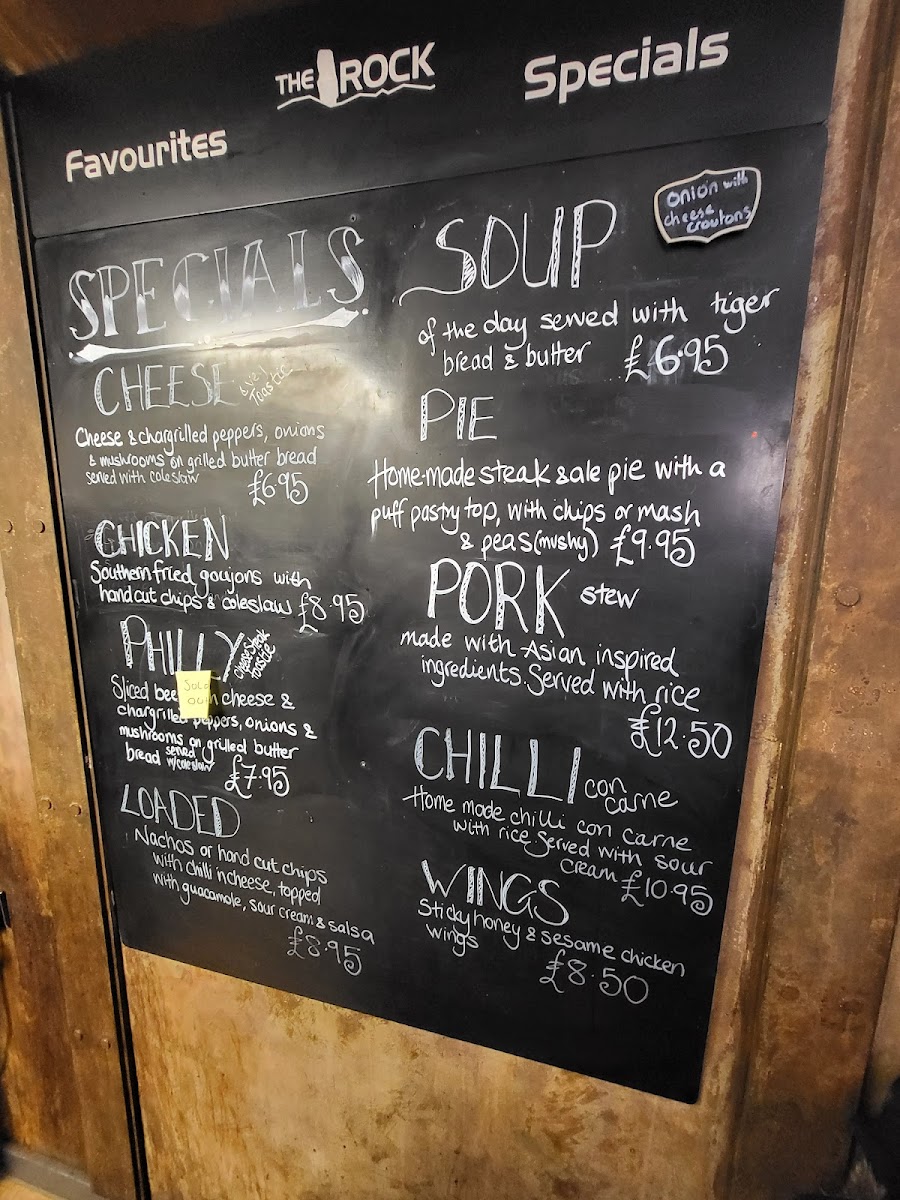 THE ROCK
Favourites
Specials
SPECIALS
CHEESE
Toastie
Cheese & chargrilled peppers, onions
& mushrooms on grilled butter bread
served with coleslaw
£6.95
CHICKEN
Southern fried goujons with
hand cut chips & coleslaw £8.95
PHILLY
Cheese Steak
toastie
Sold
out
Sliced cheese &
chargrilled peppers, onions &
mushrooms on grilled butter
bread served
w/coleslaw
£7.95
LOADED
Nachos or hand cut chips
with chilli n cheese, topped
with guacamole, sour cream & salsa
£8.95
SOUP
onion with
cheese
croutons
of the day served with tiger
bread & butter £6.95
PIE
Home-made steak & ale pie with a
puff pastry top, with chips or mash
& peas (mushy) £9.95
PORK stew
made with Asian inspired
ingredients. Served with rice
£12.50
CHILLI con
carne
Home made chilli con carne
with rice served with sour
cream £10.95
WINGS
Sticky honey & sesame chicken
wings
£8.50